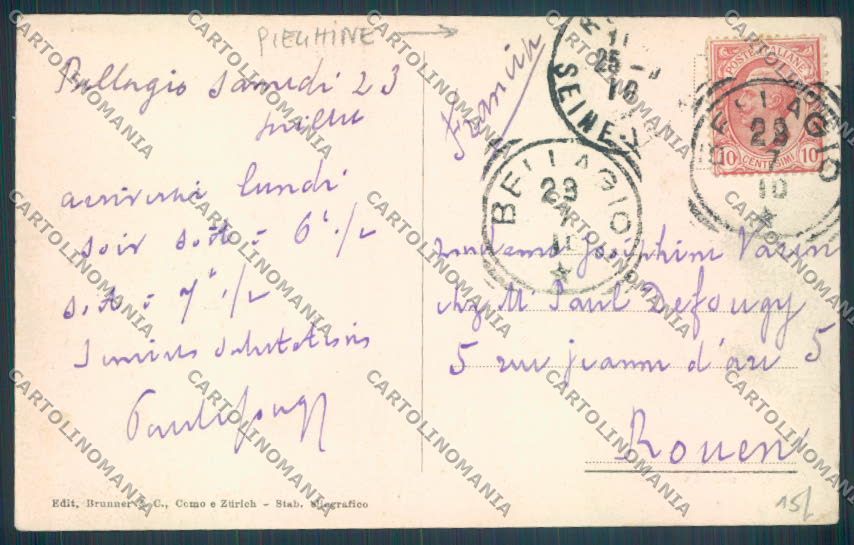 PIEGHINE →
Bellagio Samedi 23
juillet
arriverai lundi
soir soit à 6 h 1/2
soit à 7 h 1/2
Salutations
Paul Defougy
Francia
BELLAGIO
23
7
10
BELLAGIO
23
7
10
25
SEINE
POSTE ITALIANE
10 CENTESIMI 10
Madame Joséphine
chez M Paul Defougy
5 rue jeanne d'arc 5
Rouen
15/
Edit. Brunner & C., Como e Zürich - Stab. eliografico
CARTOLINOMANIA